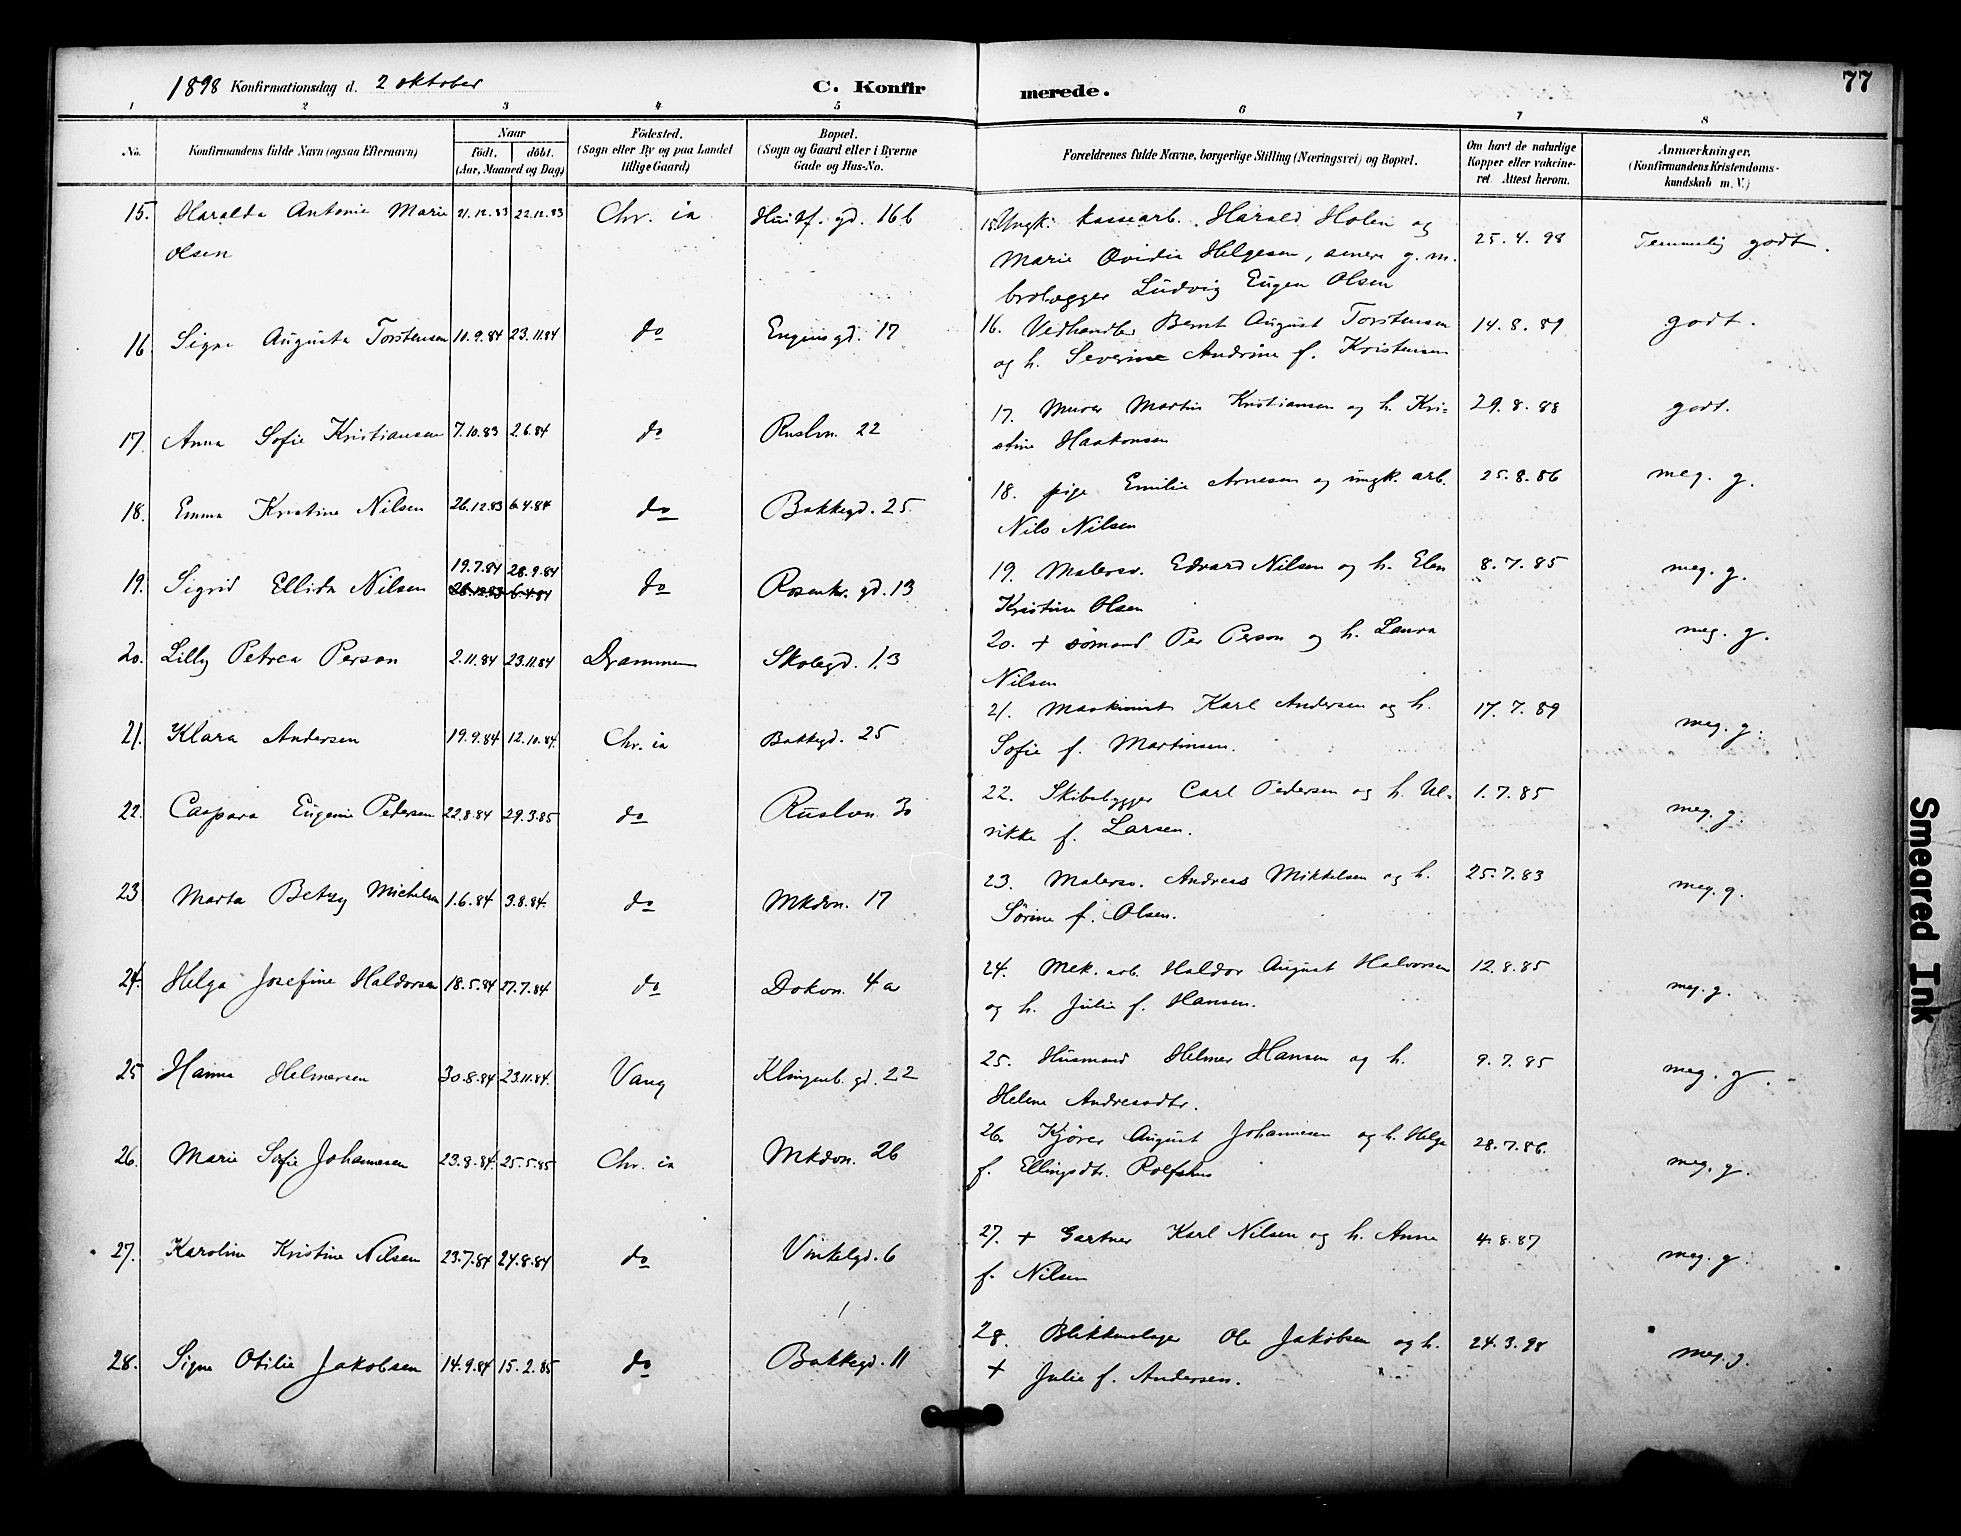 1898 Konfirmationsdag d. 2 oktober C. Konfirmerede. 77
1 2 3 4 5 6 7 8
No. Konfirmandens fulde Navn (ogsaa Efternavn) Naar født. døbt. (Aar, Maaned og Dag) Fødested. (Sogn eller By og paa Landet tillige Gaard) Bopæl. (Sogn og Gaard eller i Byerne Gade og Hus-No. Forældrenes fulde Navne, borgerlige Stilling (Næringsvei) og Bopæl. Om havt de naturlige Kopper eller vakcineret. Attest herom. Anmærkninger. (Konfirmandens Kristendomskundskab m. V.)
15. Haralda Antonie Marie 21.12.83 22.12.83 Chr. ia Huitf. gd. 16b 15. Ungk. kassearb. Harald Holen og 25.4.98 Temmelig godt.
Olsen Marie Ovidia Helgesen, senere g. m.
brolægger Ludvig Eugen Olsen
16. Signe Augusta Torstensen 10.9.84 23.11.84 do Engensgd. 17 16. Vedhandler Bernt August Torstensen 14.8.89 godt.
og h. Severine Andrine f. Kristensen
17. Anna Sofie Kristiansen 7.10.83 2.6.84 do Rusløvn. 22 17. Murer Martin Kristiansen og h. Kri- 29.8.88 godt.
stine Haakonsen
18. Emma Kristine Nilsen 26.12.83 6.4.84 do Bakkegd. 25 18. pige Emilie Arnesen og ungk. arb. 25.8.86 meg. g.
Nils Nilsen
19.7.84 28.9.84
19. Sigrid Ellida Nilsen 26.12.83 6.4.84 do Rosenkr. gd. 13 19. Malersv. Edvard Nilsen og h. Elen 8.7.85 meg. g.
Kristine Olsen
20. Lilly Petrea Person 2.11.84 23.11.84 Drammen Skolegd. 13 20. + sømand Per Person og h. Laura meg. g.
Nilsen
21. Klara Andersen 19.9.84 12.10.84. Chr. ia Bakkegd. 25 21. Maskinist Karl Andersen og h. 17.7.89 meg. g.
Sofie f. Martinsen.
22. Caspara Eugenie Pedersen 22.8.84 29.3.85 do Rusløvn. 30 22. Skibsbygger Carl Pedersen og h. Ul- 1.7.85 meg. g.
rikke f. Larsen.
23 Marta Betzy Michelsen 1.6.84 3.8.84. do Mkdvn. 17 23. Malersv. Andreas Mikkelsen og h. 25.7.83 meg. g.
Sørine f. Olsen.
24. Helga Josefine Haldorsen 18.5.84 27.7.84 do Dokvn. 4a 24. Mek. arb. Haldor August Halvorsen 12.8.85 meg. g.
og h. Julie f. Hansen.
25 Hanna Helmersen 30.8.84 23.11.84. Vang Klingenb. gd. 22 25. Husmand Helmer Hansen og h. 9.7.85 meg. g.
Helene Andreasdtr.
26. Marie Sofie Johannesen 23.8.84. 25.5.85 Chr. ia Mkdvn. 26 26. Kjører August Johannesen og h. Helga 28.7.86. meg. g.
f. Ellingsdtr. Rolfshus
27. Karoline Kristine Nilsen 23.7.84 24.8.84 do Vinkelgd. 6 27. + Gartner Karl Nilsen og h. Anna 4.8.87 meg. g.
f. Nilsen
28. Signe Otilie Jakobsen 14.9.84 15.2.85 do Bakkegd. 11 28. Blikkenslager Ole Jakobsen og h. 24.3.98 meg. g.
+ Julie f. Andersen.
Smeared Ink